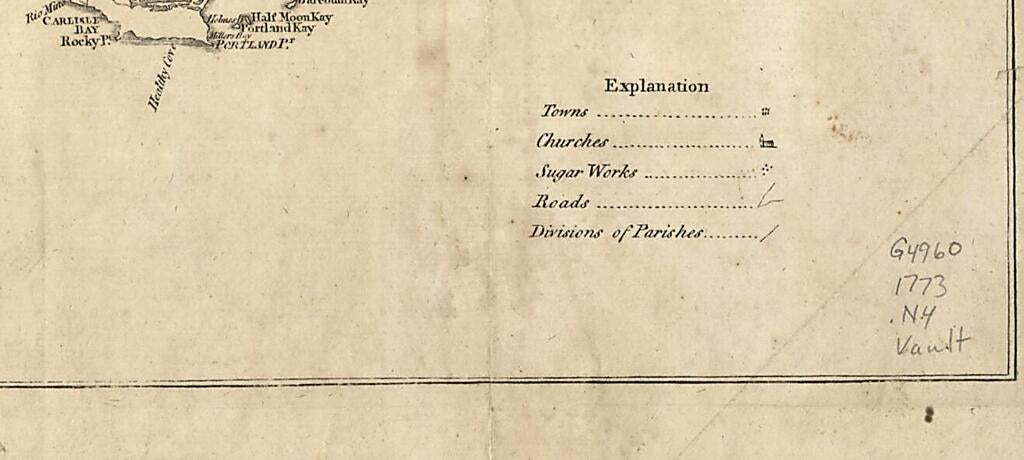 Barebush Kay
Rio Mino
CARLISLE
BAY
Rocky P.t
Holmes B.
Half Moon Kay
Portland Kay
Millers Bay
PORTLAND P.t
Healthy Cove
Explanation
Towns
Churches
Sugar Works
Roads
Divisions of Parishes
G4960
1773
.N4
Vault